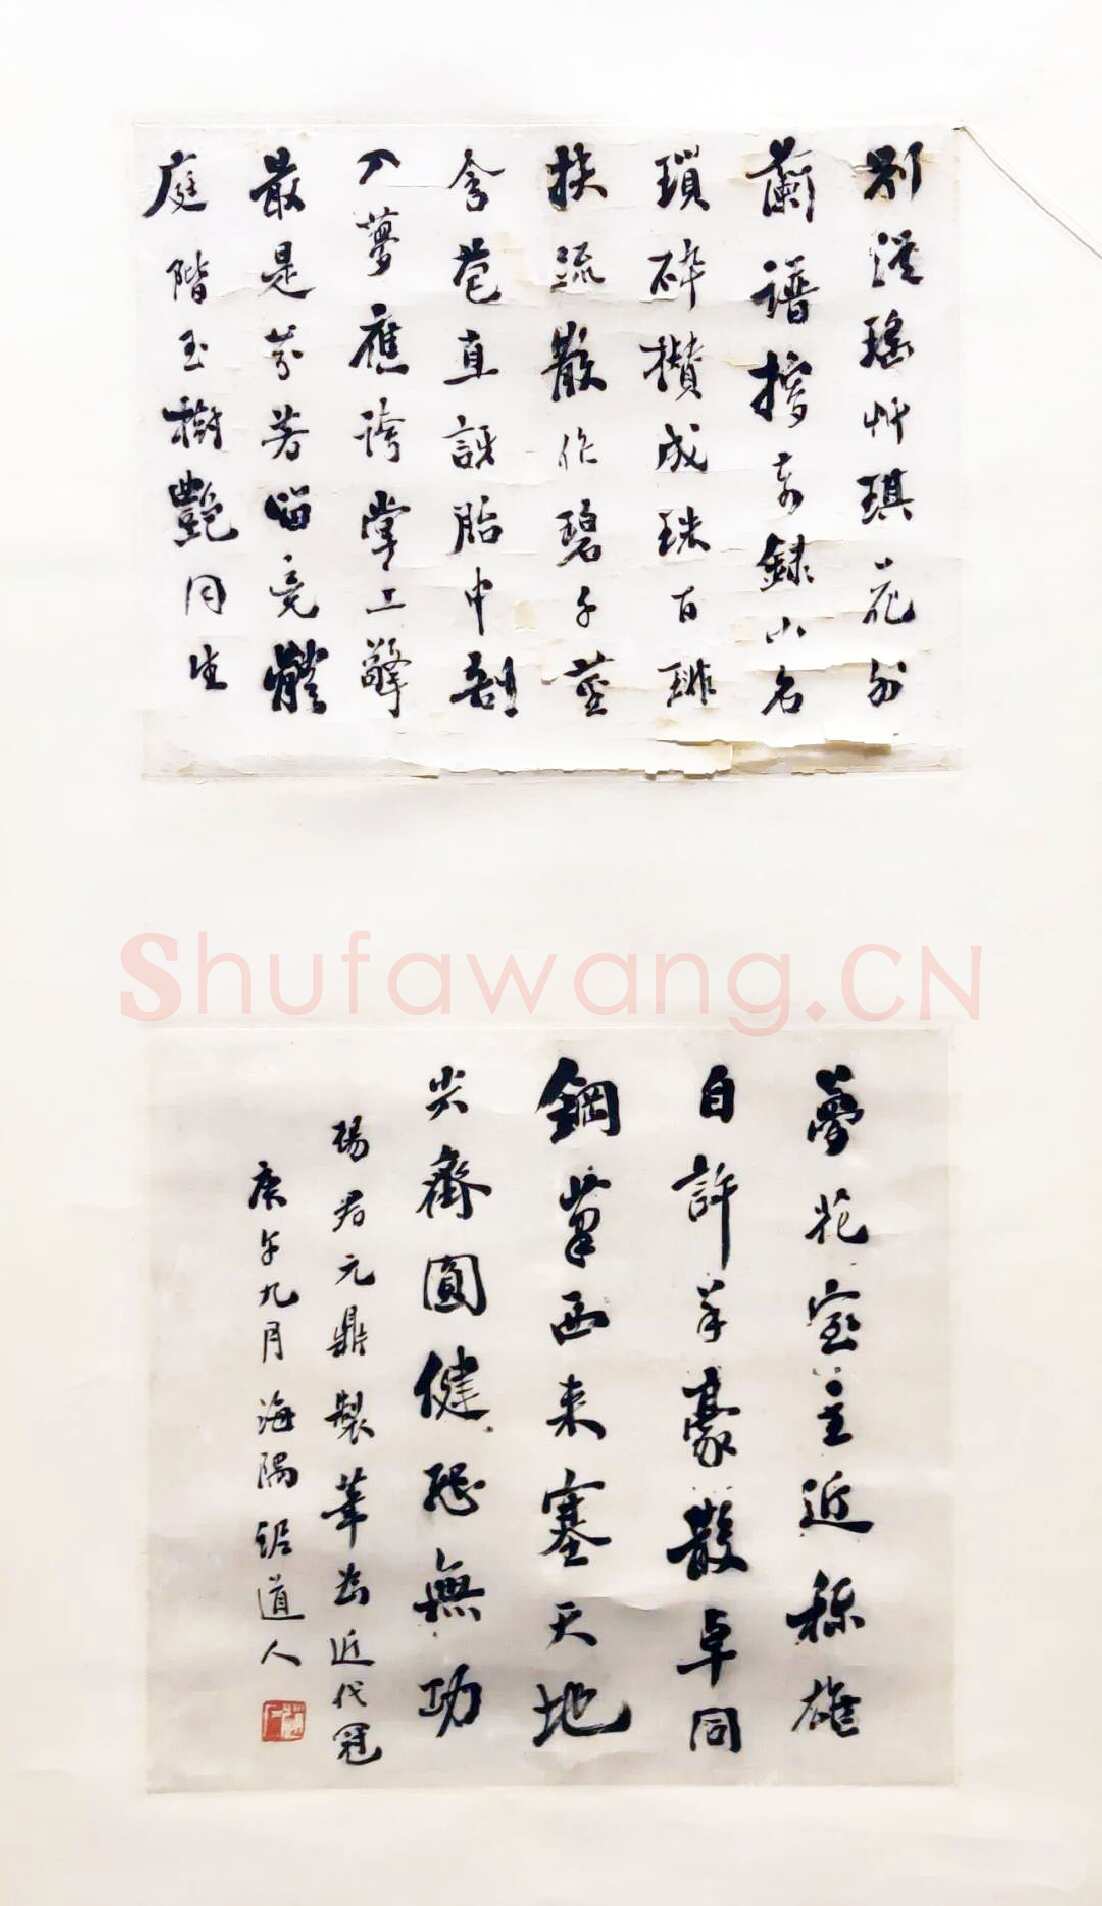 別從瑤艸琪花外
蘭譜擕名錄小名
瑣碎攢成珠百琲
扶疏散作碧千莖
含苞直訝胎中剖
入夢應誇掌上擎
最是芬芳留竟體
庭階玉樹艷同生
Shufawang.CN
夢花室主近稱雄
自許羊豪散卓同
鋼筆西來塞天地
尖齊圓健恐無功
楊君元鼎製筆為近代冠
庚午九月海隅道人